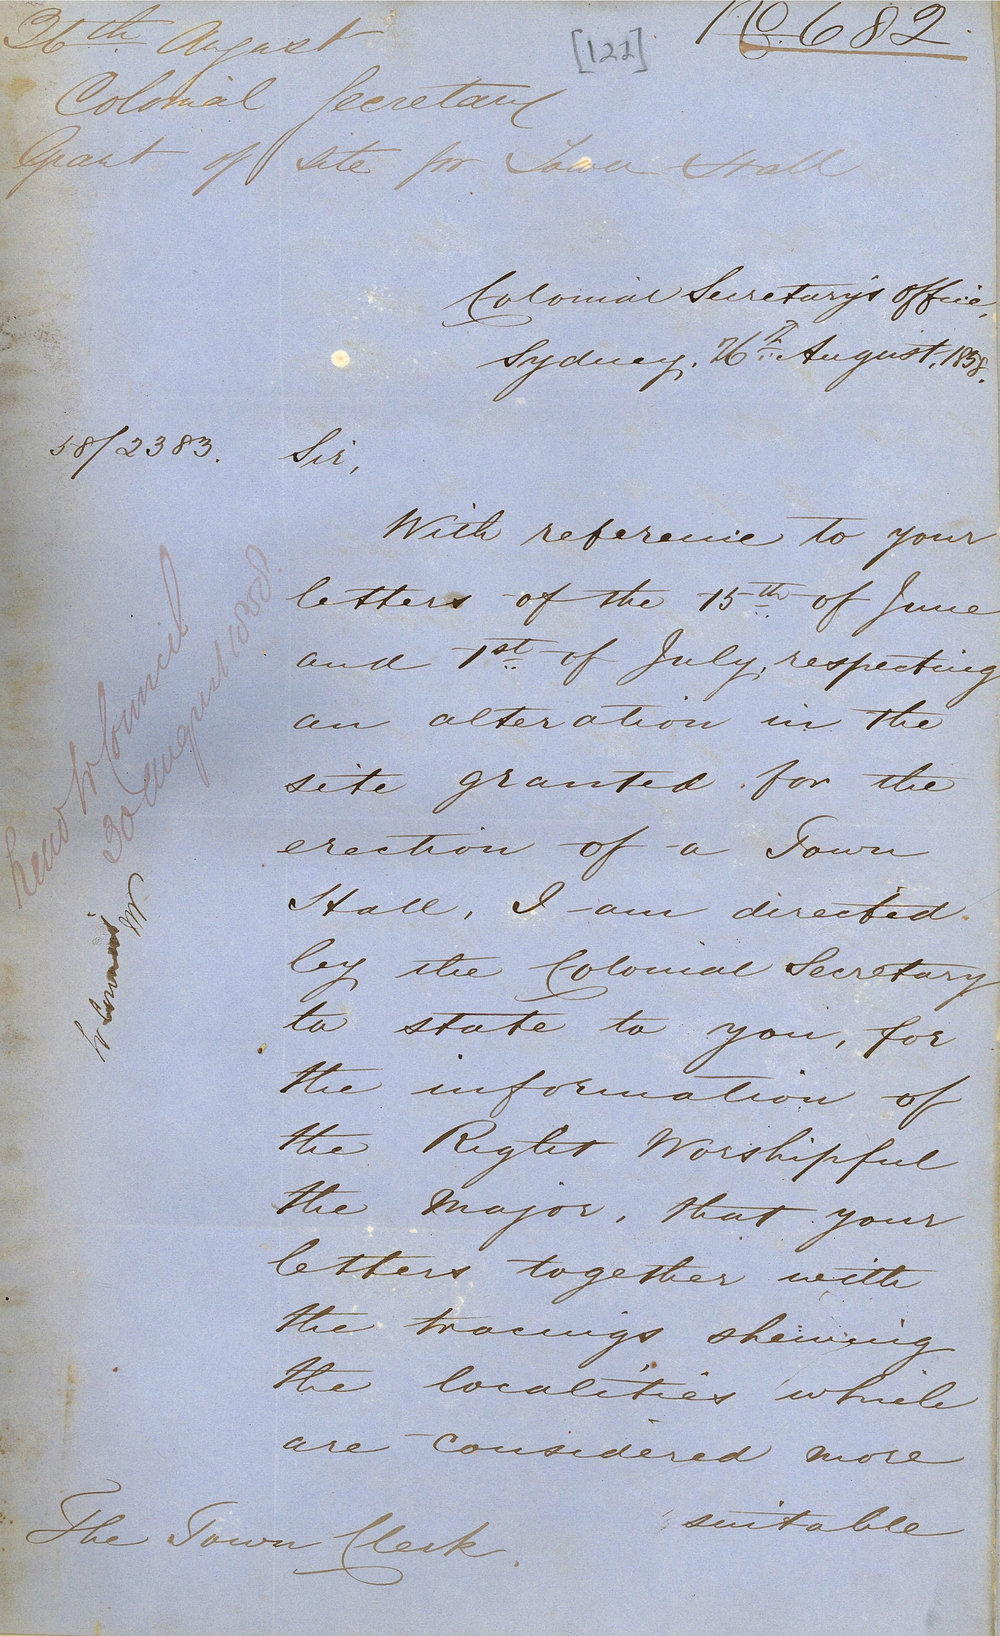 No. 682
[122]
26th August
Colonial Secretary
Grant of site for Town Hall
Colonial Secretary's Office,
Sydney, 26th August, 1858.
58/2383.
Sir,
With reference to your
letters of the 15th of June
and 1st of July, respecting
an alteration in the
site granted for the
erection of a Town
Hall, I am directed
by the Colonial Secretary
to state to you, for
the information of
the Right Worshipful
the Mayor, that your
letters together with
the tracings shewing
the localities which
are considered more
suitable
The Town Clerk.
Council
30 August 1858